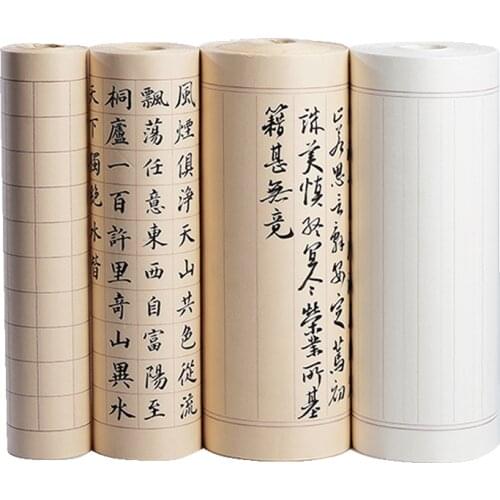 止若思言辭安定篤初
誠美慎終宜令榮業所基
籍甚無竟
風煙俱淨天山共色從流
飄蕩任意東西自富陽至
桐廬一百許里奇山異水
天下獨絕水皆